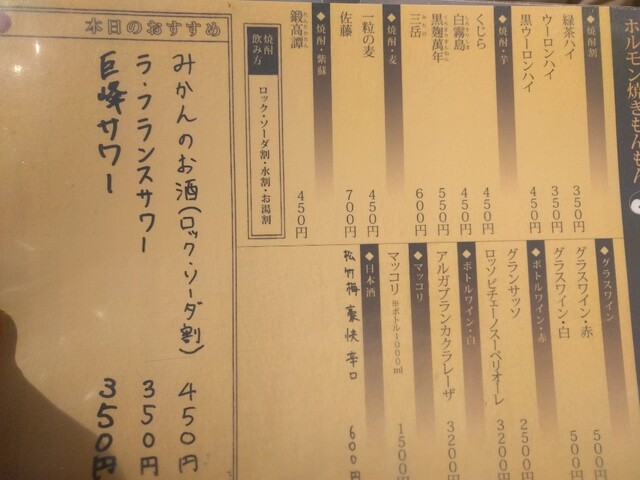 ホルモン焼きもんもん
◆焼酎割
緑茶ハイ 350円
ウーロンハイ 350円
黒ウーロンハイ 450円
◆焼酎・芋
くじら 450円
白霧島 450円
黒麹萬年 550円
三岳 600円
◆焼酎・麦
一粒の麦 450円
佐藤 700円
◆焼酎・紫蘇
鍛高譚 450円
焼酎飲み方 ロック・ソーダ割・水割・お湯割
◆グラスワイン
グラスワイン・赤 500円
グラスワイン・白 500円
◆ボトルワイン・赤
グランサッソ 2500円
ロッソピチェーノスーペリオーレ 3200円
◆ボトルワイン・白
アルガブランカクラレーザ 3200円
◆マッコリ
マッコリ ※ボトル1000ml 1500円
◆日本酒
松竹梅 豪快 辛口 600円
本日のおすすめ
みかんのお酒(ロック・ソーダ割) 450円
ラ・フランスサワー 350円
巨峰サワー 350円